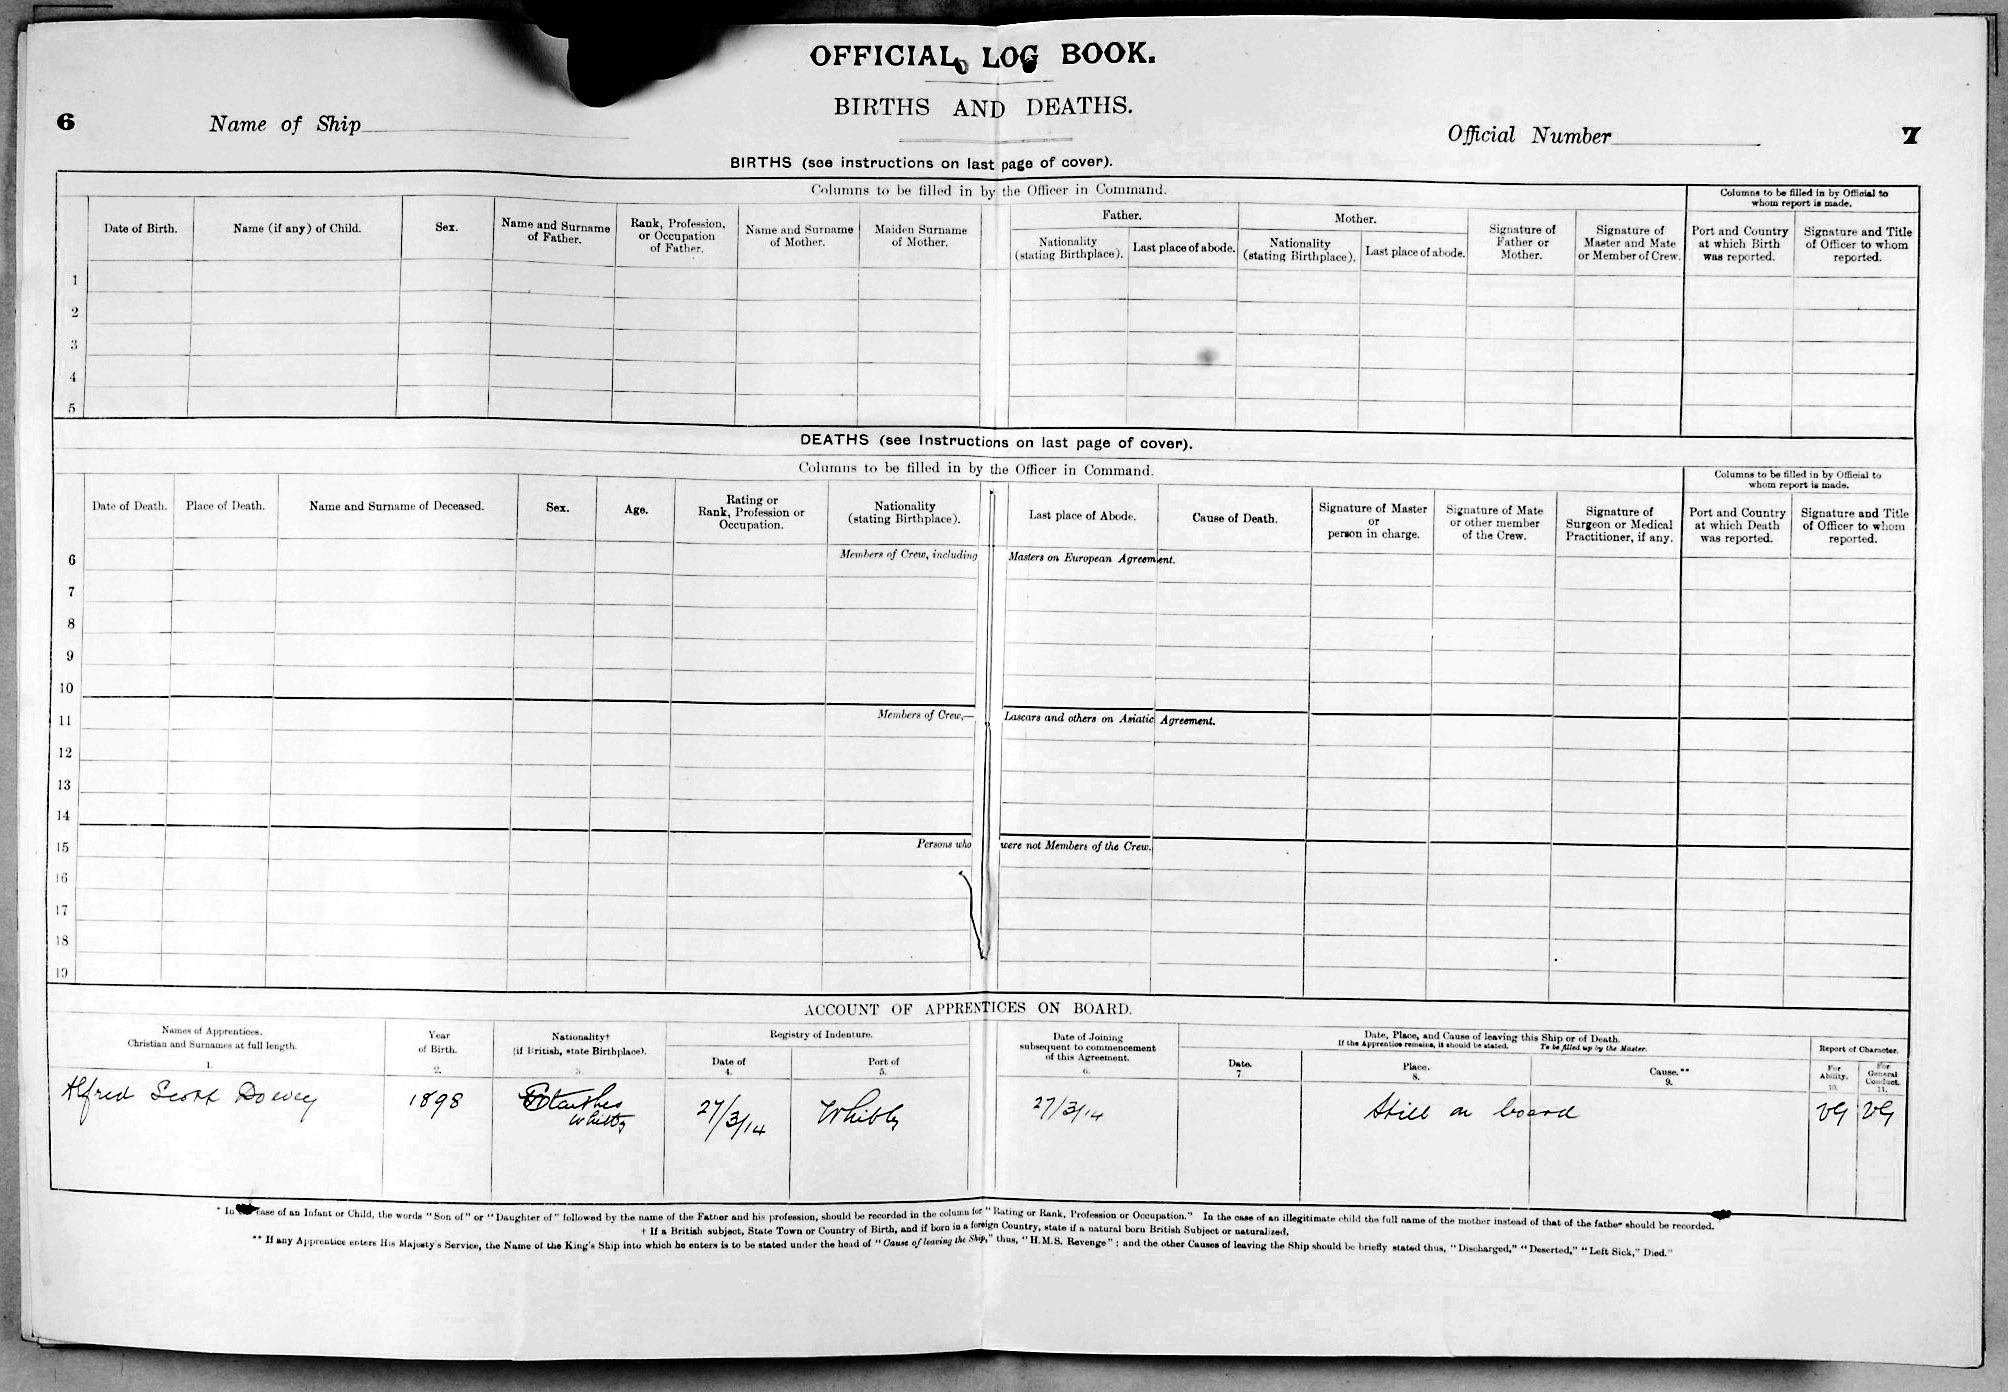 OFFICIAL LOG BOOK.
BIRTHS AND DEATHS.
6
Name of Ship
Official Number
7
BIRTHS (see instructions on last page of cover).
Columns to be filled in by the Officer in Command.
Columns to be filled in by Official to
whom report is made.
Date of Birth.
Name (if any) of Child.
Sex.
Name and Surname
of Father.
Rank, Profession,
or Occupation
of Father.
Name and Surname
of Mother.
Maiden Surname
of Mother.
Father.
Nationality
(stating Birthplace).
Last place of abode.
Mother.
Nationality
(stating Birthplace).
Last place of abode.
Signature of
Father or
Mother.
Signature of
Master and Mate
or Member of Crew.
Port and Country
at which Birth
was reported.
Signature and Title
of Officer to whom
reported.
1
2
3
4
5
DEATHS (see Instructions on last page of cover).
Columns to be filled in by the Officer in Command.
Columns to be filled in by Official to
whom report is made.
Date of Death.
Place of Death.
Name and Surname of Deceased.
Sex.
Age.
Rating or
Rank, Profession or
Occupation.
Nationality
(stating Birthplace).
Last place of Abode.
Cause of Death.
Signature of Master
or
person in charge.
Signature of Mate
or other member
of the Crew.
Signature of
Surgeon or Medical
Practitioner, if any.
Port and Country
at which Death
was reported.
Signature and Title
of Officer to whom
reported.
Members of Crew, including Masters on European Agreement.
6
7
8
9
10
Members of Crew,— Lascars and others on Asiatic Agreement.
11
12
13
14
Persons who were not Members of the Crew.
15
16
17
18
19
ACCOUNT OF APPRENTICES ON BOARD.
Names of Apprentices.
Christian and Surnames at full length.
1.
Year
of Birth.
2.
Nationality†
(if British, state Birthplace).
3.
Registry of Indenture.
Date of
4.
Port of
5.
Date of Joining
subsequent to commencement
of this Agreement.
6.
Date, Place, and Cause of leaving this Ship or of Death.
If the Apprentice remains, it should be stated. To be filled up by the Master.
Date.
7.
Place.
8.
Cause.**
9.
Report of Character.
For
Ability.
10.
For
General
Conduct.
11.
Alfred Scott 1898 27/3/14 Whitby 27/3/14 Still on board VG VG
Whitby
* In case of an Infant or Child, the words "Son of" or "Daughter of" followed by the name of the Father and his profession, should be recorded in the column for "Rating or Rank, Profession or Occupation." In the case of an illegitimate child the full name of the mother instead of that of the father should be recorded.
† If a British subject, State Town or Country of Birth, and if born in a foreign Country, state if a natural born British Subject or naturalized.
** If any Apprentice enters His Majesty's Service, the Name of the King's Ship into which he enters is to be stated under the head of "Cause of leaving the Ship," thus, "H.M.S. Revenge"; and the other Causes of leaving the Ship should be briefly stated thus, "Discharged," "Deserted," "Left Sick," Died."